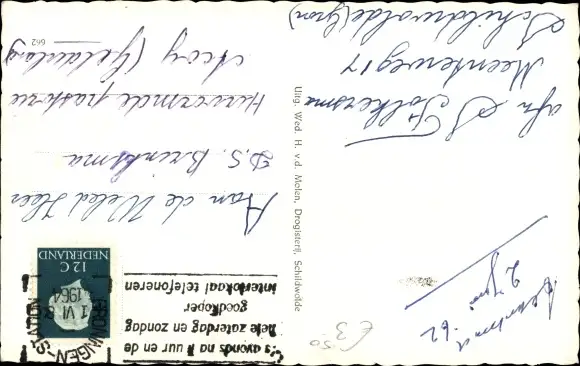 afz. S. Folkersma
Meenteweg 17
Schildwolde (Gron)
2 Juni
62
£ 3.50
Uitg. Wed. H. v.d. Molen, Drogisterij, Schildwolde
's avonds na 8 uur en de
hele zaterdag en zondag
goedkoper
interlokaal telefoneren
GRONINGEN-STATION
1 VI
1964
NEDERLAND
12 C
Aan de Weled Heer
D.S. Brinksma
Hervormde pastorie
Acoy (Gelderland)
662